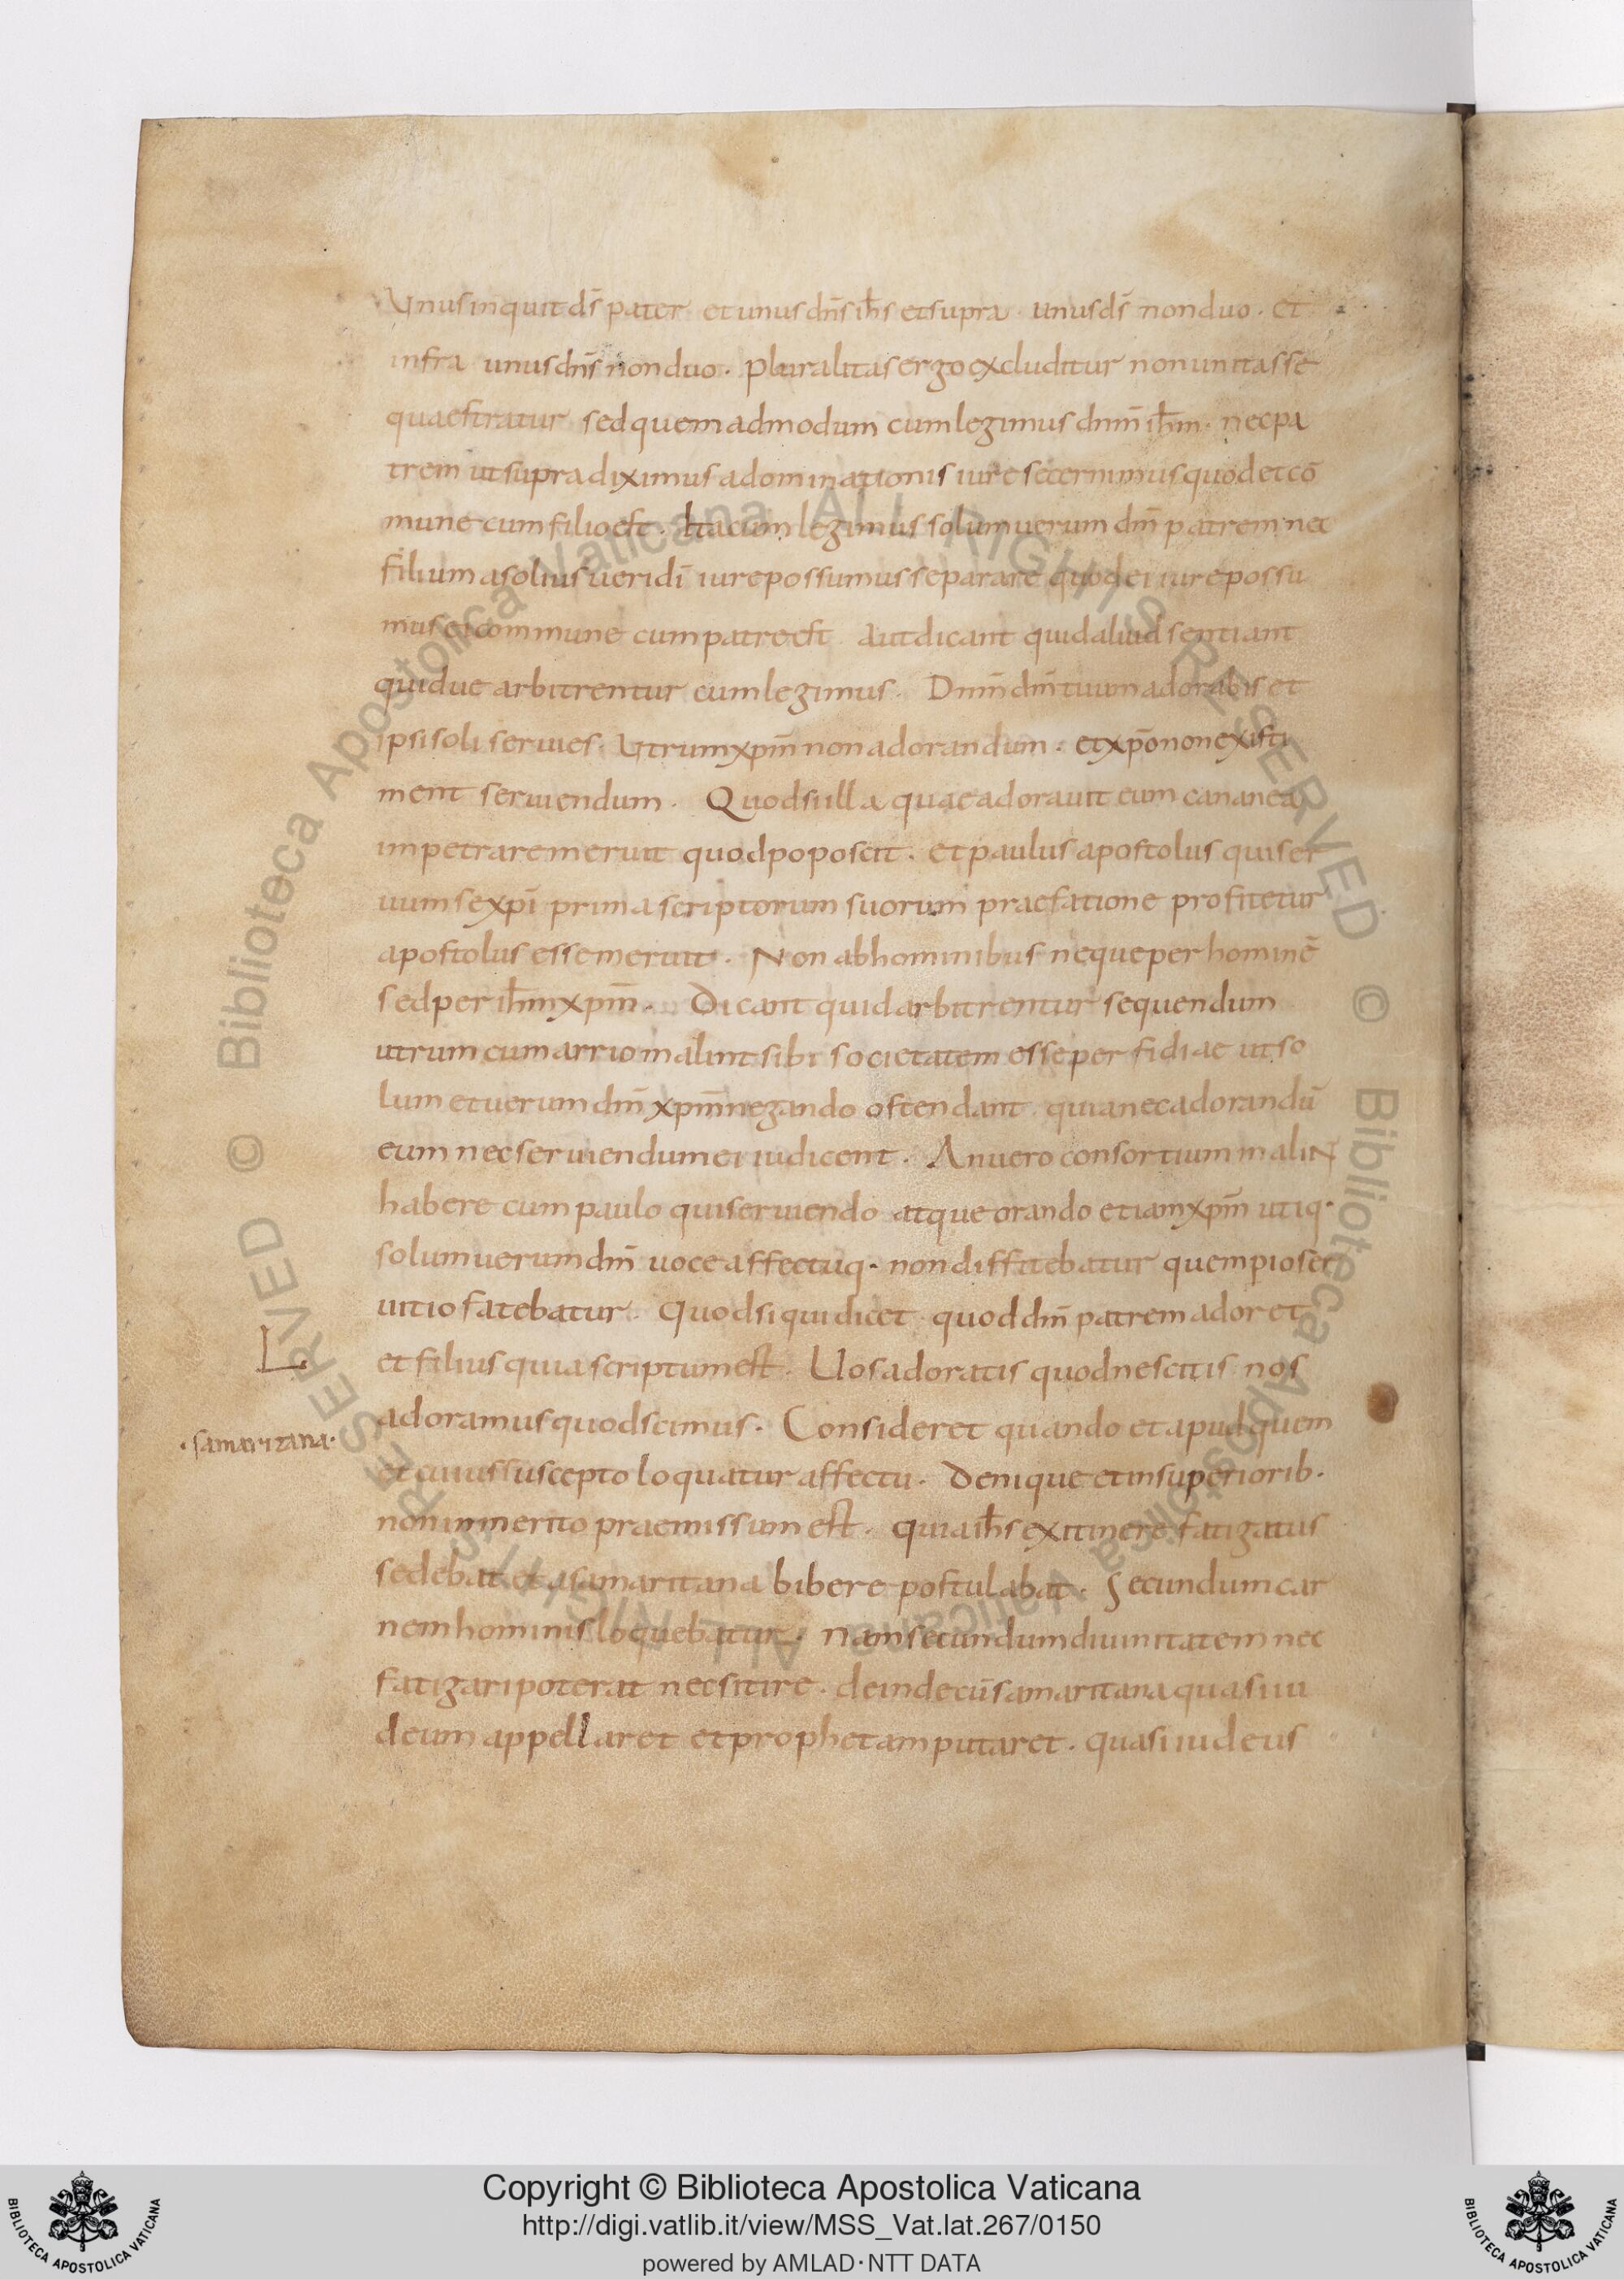 Unus inquit ds̄ pater et unus dn̄s ih̄s et supra · unus ds̄ non duo · et
infra unus dn̄s non duo · pluralitas ergo excluditur non unitas se
quaestratur sed quemadmodum cum legimus dnm̄ ih̄m · nec pa
trem ut supra diximus a dominationis iure secernimus quod et cō
mune cum filio est · Ita cum legimus solum uerum dm̄ patrem nec
filium a solius ueri dī iure possumus separare quod ei iure possu
mus ei commune cum patre est Aut dicant quid aliud sentiant
quidue arbitrentur cum legimus · Dnm̄ dm̄ tuum adorabis et
ipsi soli seruies · Utrum xpm̄ non adorandum · et xp̄o non existi
ment seruiendum · Quod si illa quae adorauit eum cananea
impetrare meruit quod poposcit · et paulus apostolus qui ser
uum se xpī prima scriptorum suorum praefatione profitetur
apostolus esse meruit · Non ab hominibus neque per hominē
sed per ih̄m xpm̄ · Dicant quid arbitrentur sequendum
utrum cum arrio malint sibi societatem esse perfidiae ut so
lum et uerum dm̄ xpm̄ negando ostendant quia nec adorandū
eum nec seruiendum ei iudicent · An uero consortium malint
habere cum paulo qui seruiendo atque orando etiam xpm̄ utiq·
solum uerum dm̄ uoce affectuq· non diffitebatur quem pio ser
uitio fatebatur · Quod si qui dicet · quod dm̄ patrem adoret
et filius quia scriptum est · Uos adoratis quod nescitis nos
adoramus quod scimus · Consideret quando et apud quem
· samaritana ·
et cuius suscepto loquatur affectu · Denique et in superiorib·
non inmerito praemissum est · quia ih̄s ex itinere fatigatus
sedebat et a samaritana bibere postulabat · Secundum car
nem hominis loquebatur · Nam secundum diuinitatem nec
fatigari poterat nec sitire · deinde cū samaritana quasi iu
deum appellaret et prophetam putaret · quasi iudeus
Copyright © Biblioteca Apostolica Vaticana
http://digi.vatlib.it/view/MSS_Vat.lat.267/0150
powered by AMLAD · NTT DATA
BIBLIOTECA APOSTOLICA VATICANA
BIBLIOTECA APOSTOLICA VATICANA
© Biblioteca Apostolica Vaticana ALL RIGHTS RESERVED
© Biblioteca Apostolica Vaticana ALL RIGHTS RESERVED